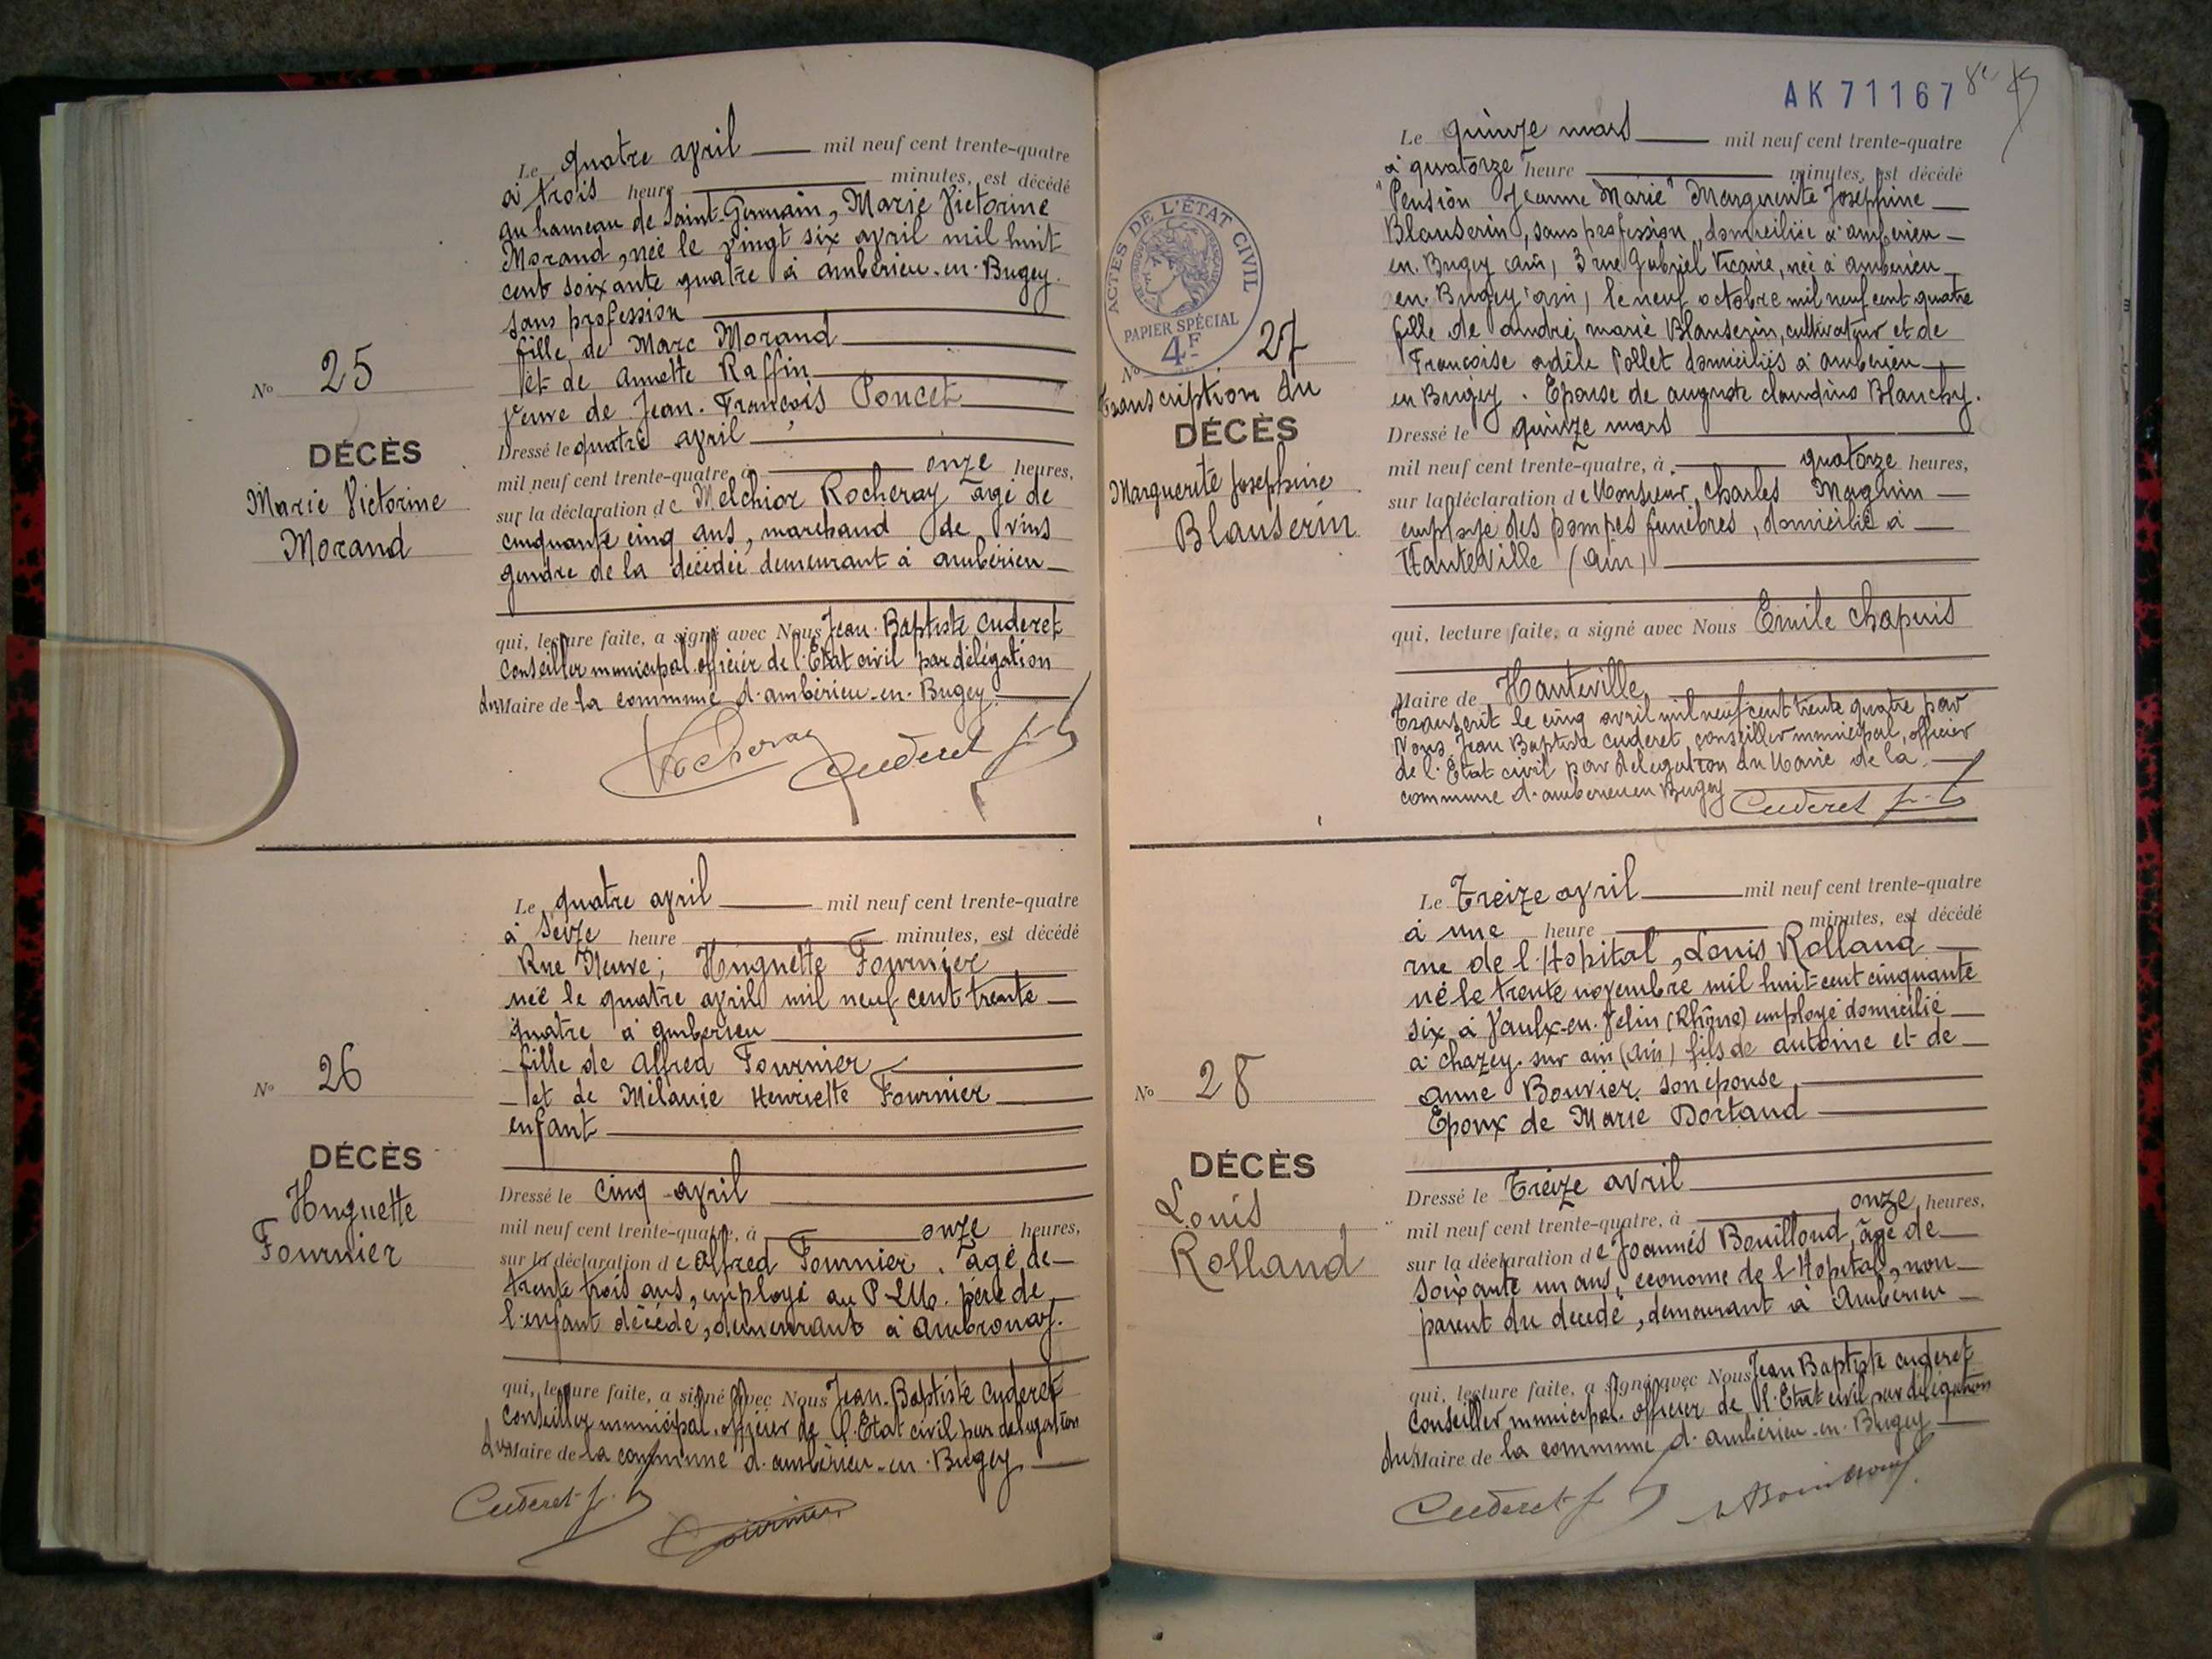 Le quatre avril mil neuf cent trente-quatre
à trois heure minutes, est décédé
au hameau de Saint-Germain, Marie Victorine
Morand, née le vingt six avril mil huit
cent soixante quatre à Ambérieu-en-Bugey.
sans profession
fille de Marc Morand
et de Annette Raffin
veuve de Jean-François Poncet
Dressé le quatre avril
mil neuf cent trente-quatre, à onze heures,
sur la déclaration de Melchior Rocheray âgé de
cinquante cinq ans, marchand de vins
gendre de la décédée demeurant à Ambérieu
qui, lecture faite, a signé avec Nous Jean-Baptiste Cuderet
Conseiller municipal officier de l'Etat civil par délégation
du Maire de la commune d'Ambérieu-en-Bugey
Rocheray Cuderet
N° 25
DÉCÈS
Marie Victorine
Morand
Le quatre avril mil neuf cent trente-quatre
à seize heure minutes, est décédé
Rue Neuve; Huguette Fournier
née le quatre avril mil neuf cent trente
quatre à Ambérieu
fille de Alfred Fournier
et de Mélanie Henriette Fournier
enfant
Dressé le cinq avril
mil neuf cent trente-quatre, à onze heures,
sur la déclaration de Alfred Fournier, âgé de
trente trois ans, employé au P.L.M. père de
l'enfant décédé, demeurant à Ambronay.
qui, lecture faite, a signé avec Nous Jean-Baptiste Cuderet
Conseiller municipal, officier de l'Etat civil par délégation
du Maire de la commune d'Ambérieu-en-Bugey
Cuderet Fournier
N° 26
DÉCÈS
Huguette
Fournier
AK 71167
Le quinze mars mil neuf cent trente-quatre
à quatorze heure minutes, est décédé
"Pension Jeanne Marie" Marguerite Joséphine
Blauserin, sans profession, domiciliée à Ambérieu
en Bugey (Ain) 3 rue Gabriel Vicaire, née à Ambérieu
en Bugey (Ain) le neuf octobre mil neuf cent quatre
fille de André Marie Blauserin, cultivateur et de
Françoise Adèle Pollet domiciliés à Ambérieu
en Bugey. Epouse de Auguste Claudius Blanchy.
Dressé le quinze mars
mil neuf cent trente-quatre, à quatorze heures,
sur la déclaration de Monsieur Charles Magnin
employé des pompes funèbres, domicilié à
Hauteville (Ain)
qui, lecture faite, a signé avec Nous Emile Chapuis
Maire de Hauteville
Transcrit le cinq avril mil neuf cent trente quatre par
Nous Jean Baptiste Cuderet conseiller municipal, officier
de l'Etat civil par délégation du Maire de la
commune d'Ambérieu en Bugey Cuderet
ACTES DE L'ÉTAT CIVIL
PAPIER SPÉCIAL
4F
N° 27
Transcription du
DÉCÈS
Marguerite Joséphine
Blauserin
Le Treize avril mil neuf cent trente-quatre
à une heure minutes, est décédé
rue de l'Hopital, Louis Rolland
né le trente novembre mil huit cent cinquante
six à Vaulx-en-Velin (Rhône) employé domicilié
à Chazey-sur-Ain (Ain) fils de Antoine et de
Anne Bouvier son épouse
Epoux de Marie Dortand
Dressé le Treize avril
mil neuf cent trente-quatre, à onze heures,
sur la déclaration de Joannès Bouilloud, âgé de
soixante un ans, économe de l'Hopital, non
parent du décédé, demeurant à Ambérieu
qui, lecture faite, a signé avec Nous Jean Baptiste Cuderet
Conseiller municipal, officier de l'Etat civil par délégation
du Maire de la commune d'Ambérieu-en-Bugey
Cuderet Bouilloud
N° 28
DÉCÈS
Louis
Rolland